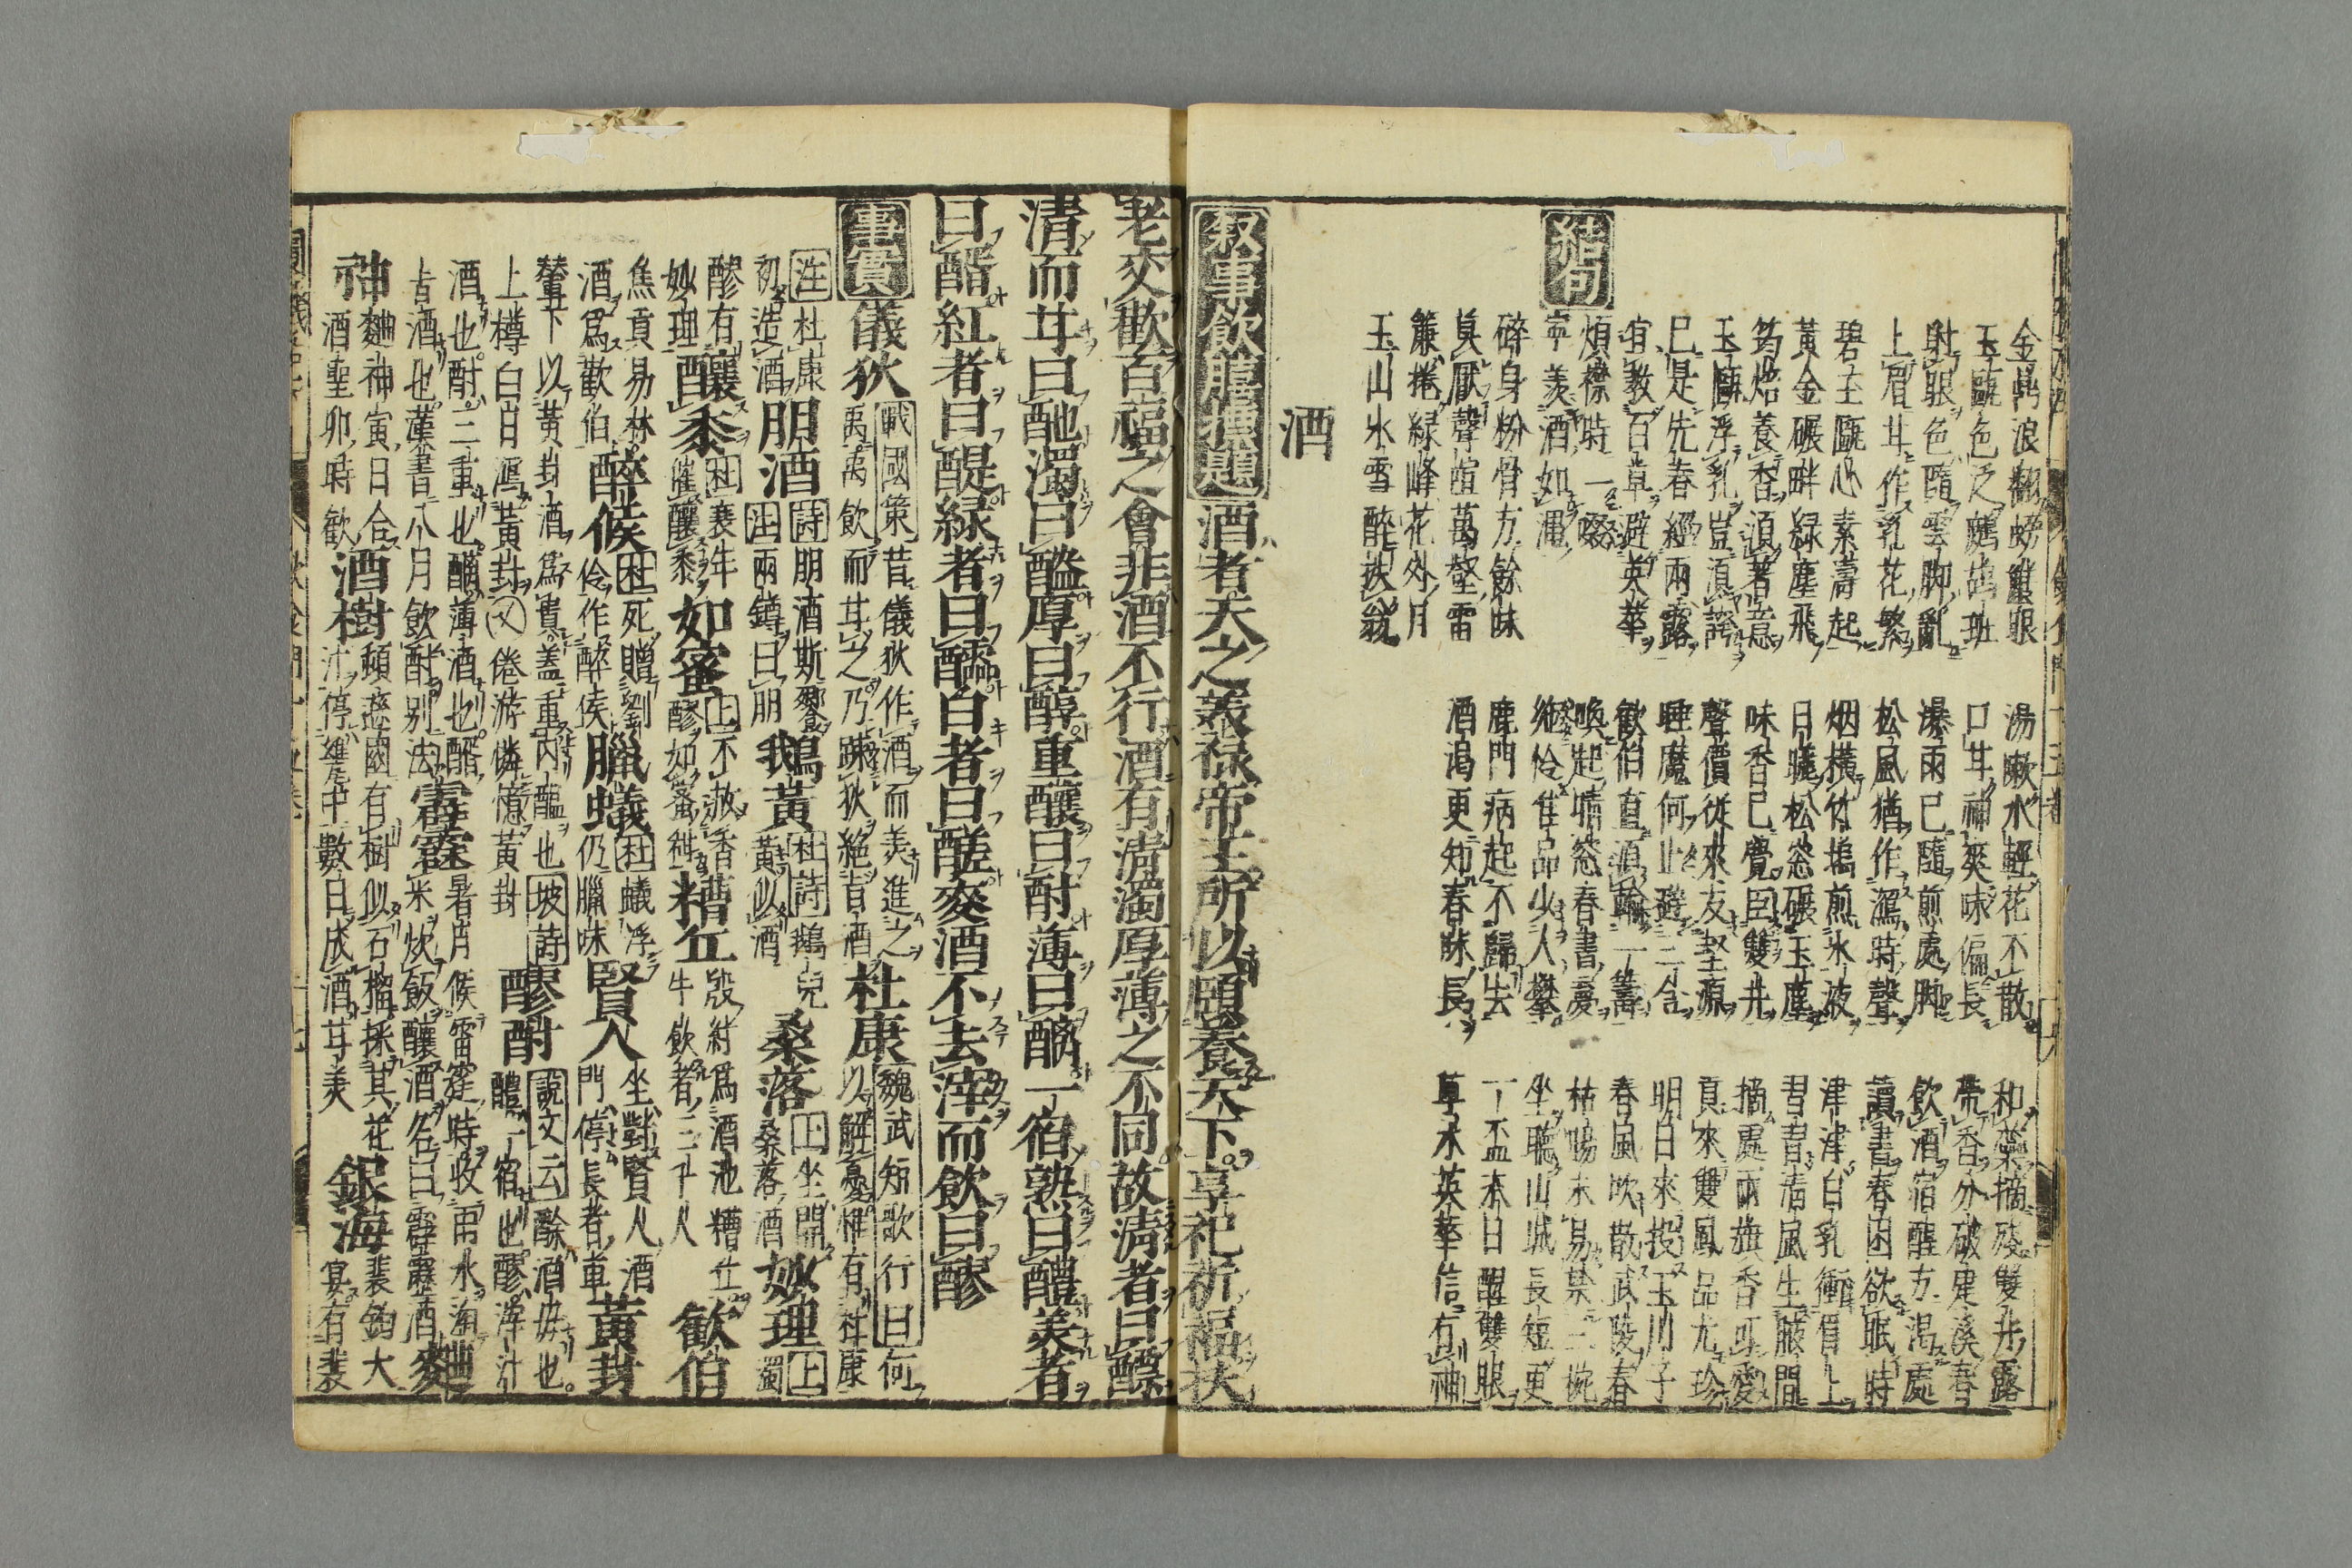 金鼎浪翻螃蟹眼
湯嗽水輕花不散
玉甌色乏鷓鴣班
口甘神爽味偏長
射眼色隨雲脚亂
瀑雨已隨煎處脚
飲酒宿醒方渴處
上眉甘作乳花繁
松風猶作瀉時聲
讀書春困欲眠時
碧玉甌心素濤起
烟橫竹塢煎水液
津津白乳衝眉上
黃金碾畔緑塵飛
日曬松窓碾玉塵
習習清風生腋間
筠焙養香須著意
味香已覺臣雙井
摘處兩旗香可愛
玉甌浮乳豈須誇
聲價從來友壑源
貢來雙鳳品尤珍
已是先春經雨露
睡魔何止避三舍
明白來投玉川子
宜教百草避英華
歡伯直須輸一籌
春風吹散武陵春
結句
煩襟時一啜
喚起晴窓春書憂
枯腸未易禁三椀
寧羨酒如澠
坐聽山城長短更
碎身粉骨方餘味
鹿門病起不歸去
一盃春日醒雙眼
莫厭聲喧萬壑雷
酒渴更知春味長
草木英華信有神
簾捲緑峰花外月
玉山氷雪醉扶翁
酒
叙事飲膳摭題 酒者天之羙祿帝王所以頤養天下享祀祈福扶
老交歡百福之會非酒不行酒有清濁厚薄之不同故清者曰醥
清而甘曰酏濁曰醠厚曰醇重釀曰酎薄曰醨一宿熟曰醴羙者
曰醑紅者曰醍緑者曰醽白者曰醝麥酒不去滓而飲曰醪
事實 儀狄 戰國策 昔儀狄作酒而羙進之
禹禹飲而甘之乃踈狄絶旨酒
杜康 魏武短歌行曰 何
以解憂惟有杜康
注 杜康
初造酒
朋酒 詩 朋酒斯饗
注 兩罇曰朋
鵝黃 杜詩 鵝兒
黃似酒
桑落 上 坐開
桑落酒
妙理 上 濁
醪有
妙理
釀黍 杜 衰年
催釀黍
如蜜 上 不放香
醪如蜜甜
糟丘 殷紂爲酒池糟丘
牛飲者三千人
歡伯
焦貢易林
酒爲歡伯
醉候 杜 死贈劉
伶作醉侯
臘蟻 杜 蟻浮
仍臘味
賢人 坐對賢人酒
門停長者車
黃封
輦下以黃封酒爲貴蓋重内醞也 坡詩
上樽白日瀉黃封 又 倦游憐憶黃封
醪酎 說文云 酴酒母也
醴一宿也醪滓汁
酒也酎三重也醨薄酒也醑
古酒也漢書八月飲酎別法
霹靂 暑月候雷霆時收雨水淘
米炊飯釀酒名曰霹靂酒
麯
神 麯神寅日合
酒聖卯時歡
酒樹 頓遜國有樹似石榴採其花
汁停甕中數日成酒甘美
銀海 裴鈞大
宴有裴